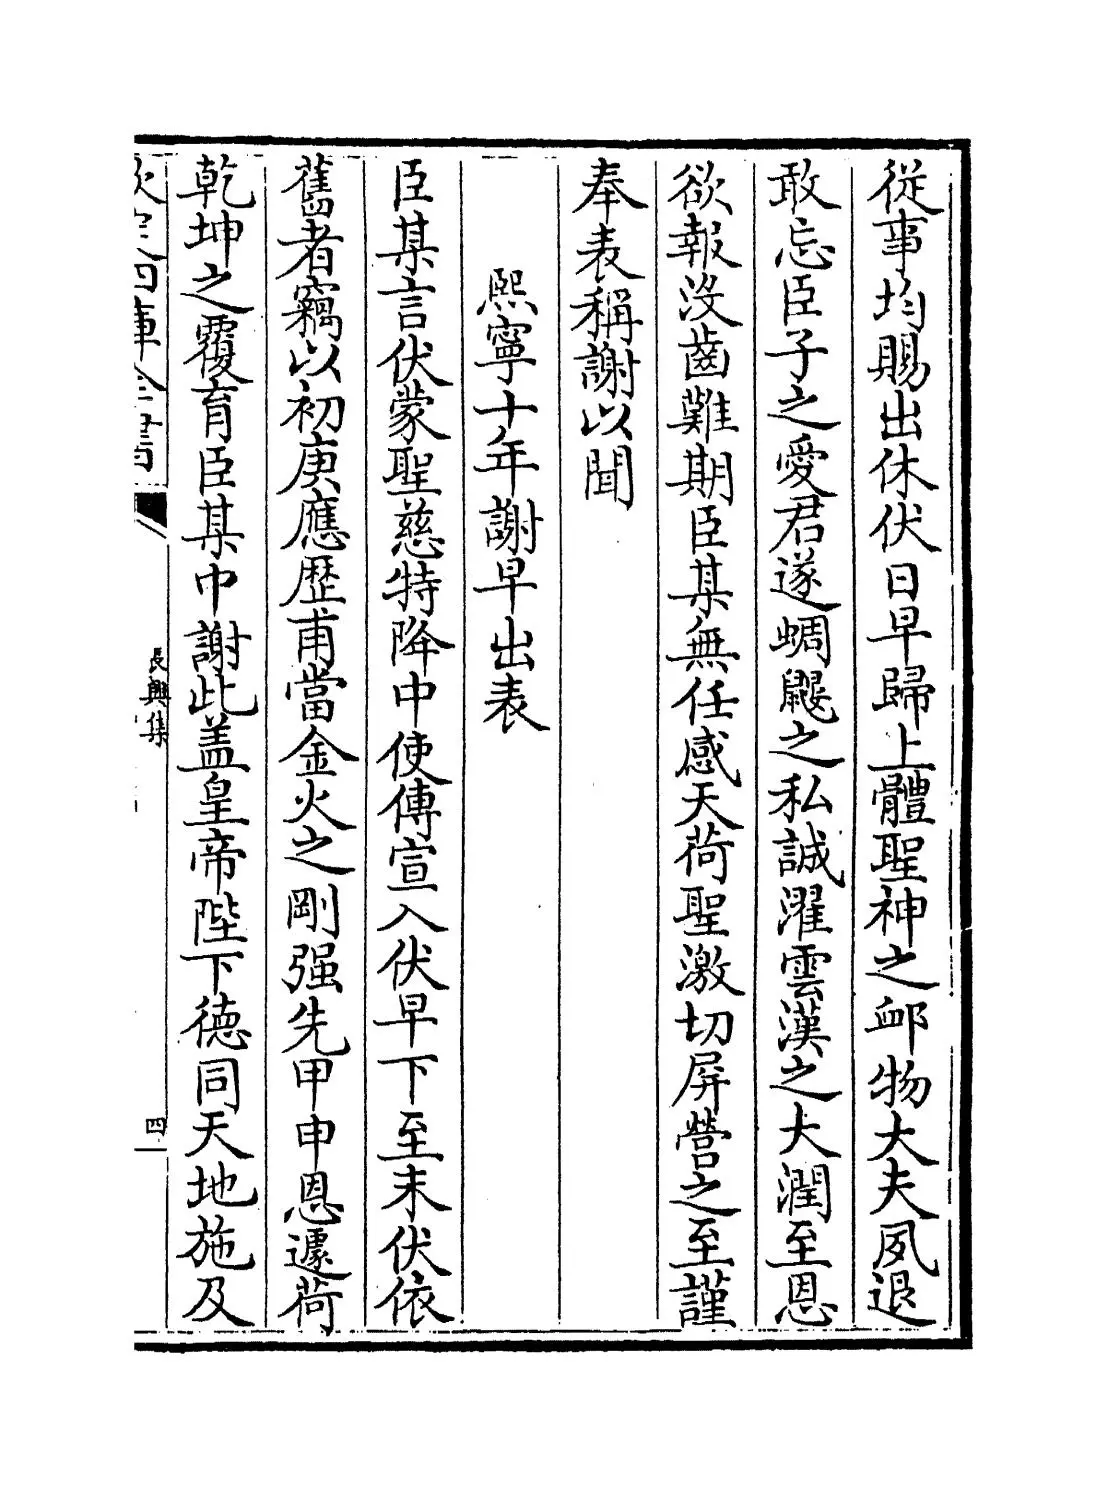 從事均賜出休伏日早歸上體聖神之䘏物大夫夙退
敢忘臣子之愛君遂蜩鼹之私誠濯雲漢之大潤至恩
欲報沒齒難期臣某無任感天荷聖激切屏營之至謹
奉表稱謝以聞
熙寧十年謝早出表
臣某言伏蒙聖慈特降中使傳宣入伏早下至末伏依
舊者竊以初庚應歴甫當金火之剛强先甲申恩遽荷
乾坤之覆育臣某中謝此盖皇帝陛下德同天地施及
欽定四庫全書
長興集
四